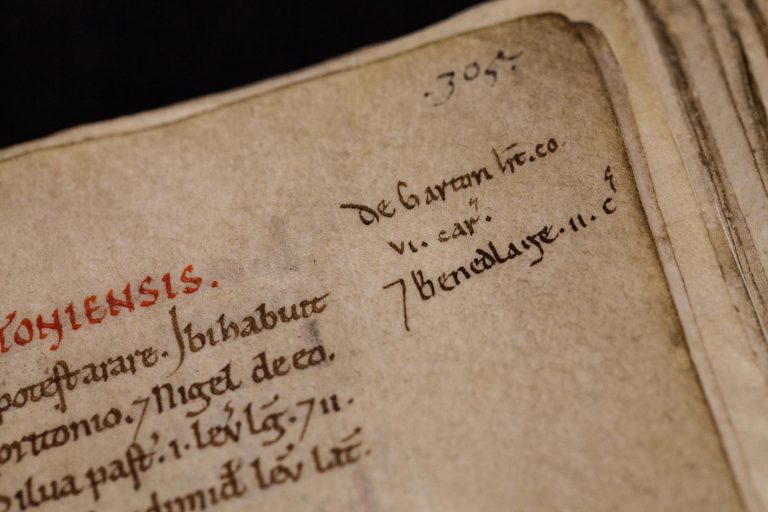 .305.
de barton hr̄t. co
vi. car̃.
⁊ benedlaige. ii. c̃
TONIENSIS.
potest arare. Ibi habuit
⁊ Nigel̃ de eo.
silua past̃. i. lev̄ lg̃. ⁊ ii.
dimid̃ lev̄ lat̃.